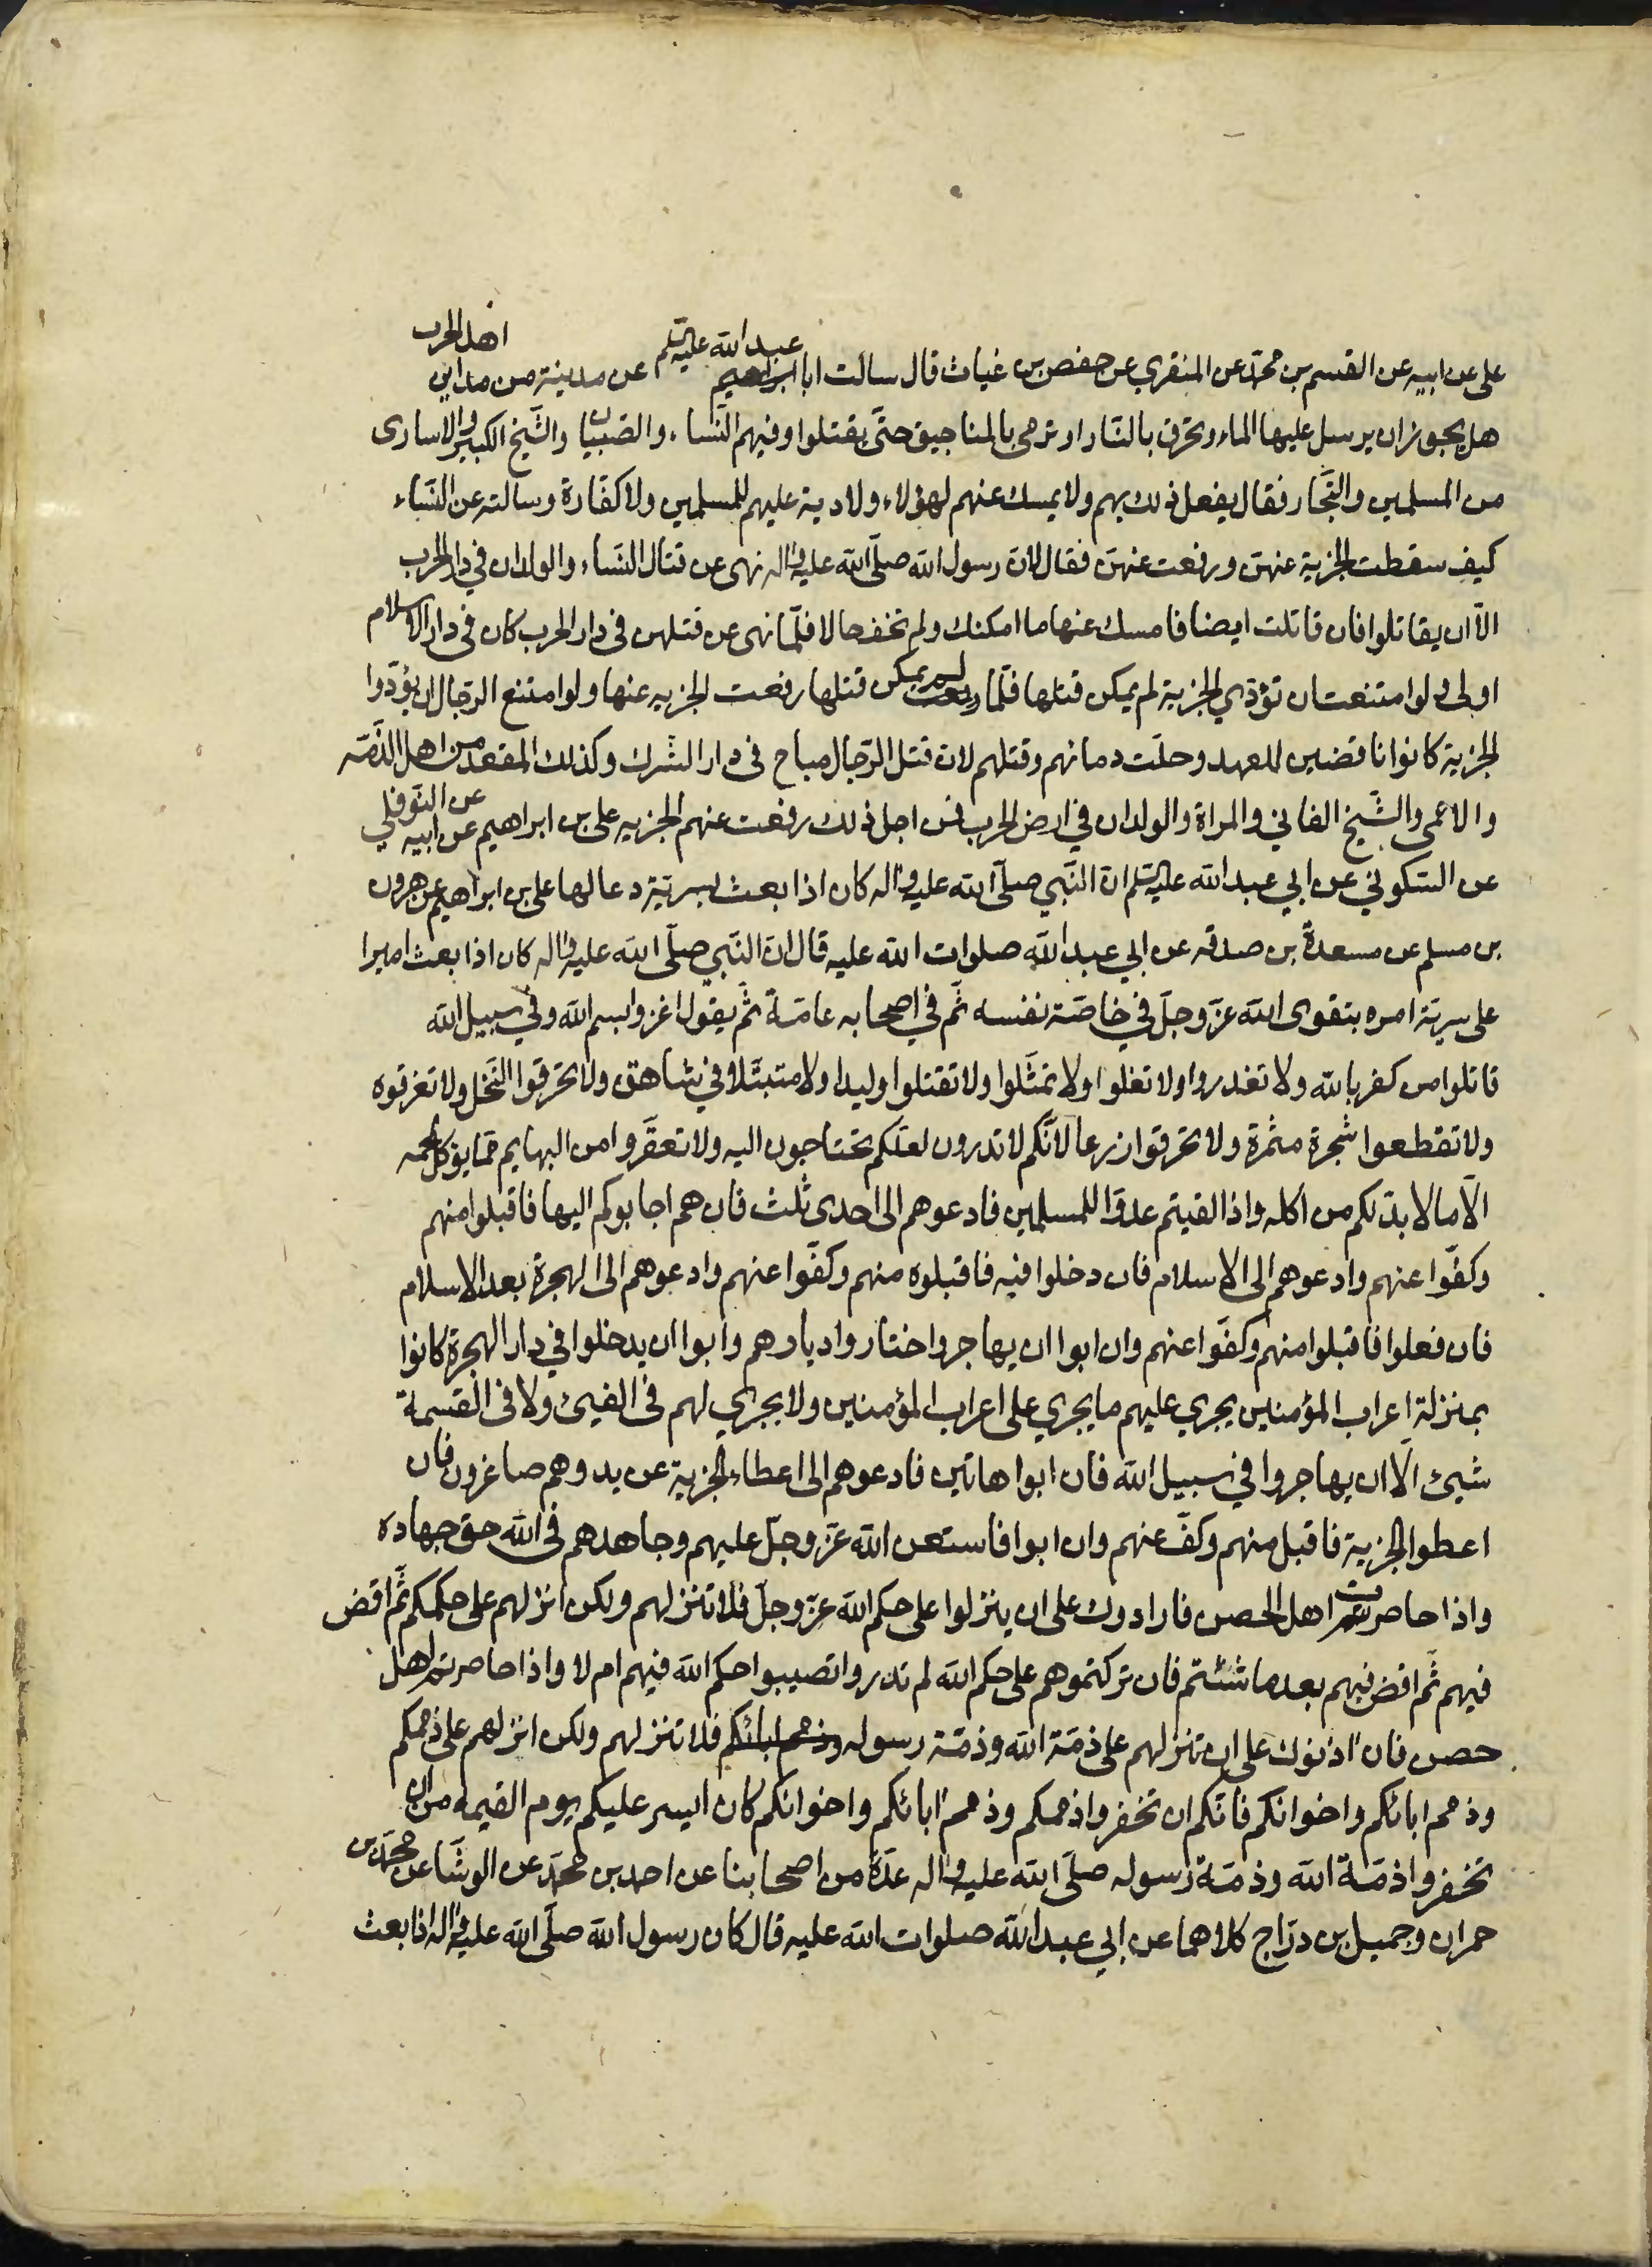 على عن ابيه عن القسم بن محمد عن المنقري عن حفص بن غياث قال سالت ابا عبد الله عليه السلم عن مدينة من مداين اهل الحرب
هل يجوز ان يرسل عليها الماء وتحرق بالنار او ترمى بالمناجيق حتى يقتلوا وفيهم النساء والصبيان والشيخ الكبير والاسارى
من المسلمين والتجار فقال يفعل ذلك بهم ولا يمسك عنهم لهؤلاء ولا دية عليهم للمسلمين ولا كفارة وسالته عن النساء
كيف سقطت الجزية عنهن ورفعت عنهن فقال لان رسول الله صلى الله عليه واله نهى عن قتال النساء والولدان في دار الحرب
الا ان يقاتلوا فان قاتلت ايضا فامسك عنها ما امكنك ولم تخف حالا فلما نهى عن قتلهن في دار الحرب كان في دار الاسلام
اولى ولو امتنعت ان تؤدي الجزية لم يمكن قتلها فلما لم يمكن قتلها رفعت الجزيه عنها ولو امتنع الرجال ان يؤدوا
الجزية كانوا ناقضين للعهد وحلت دمائهم وقتلهم لان قتل الرجال مباح في دار الشرك وكذلك المقعد من اهل الذمه
والاعمى والشيخ الفاني والمراة والولدان في ارض الحرب فمن اجل ذلك رفعت عنهم الجزيه على بن ابراهيم عن ابيه عن النوفلي
عن السكوني عن ابي عبد الله عليه السلم ان النبي صلى الله عليه واله كان اذا بعث بسرية دعا لها على بن ابراهيم عن هرون
بن مسلم عن مسعدة بن صدقه عن ابي عبد الله صلوات الله عليه قال ان النبي صلى الله عليه واله كان اذا بعث اميرا
على سرية امره بتقوى الله عز وجل في خاصة نفسه ثم في اصحابه عامة ثم يقول اغزوا بسم الله وفي سبيل الله
قاتلوا من كفر بالله ولا تغدروا ولا تغلوا ولا تمثلوا ولا تقتلوا وليدا ولا متبتلا في شاهق ولا تحرقوا النخل ولا تغرقوه
ولا تقطعوا شجرة مثمرة ولا تحرقوا زرعا لانكم لا تدرون لعلكم تحتاجون اليه ولا تعقروا من البهايم مما يؤكل لحمه
الا ما لا بد لكم من اكله واذا لقيتم عدوا للمسلمين فادعوهم الى احدى ثلث فان هم اجابوكم اليها فاقبلوا منهم
وكفوا عنهم وادعوهم الى الاسلام فان دخلوا فيه فاقبلوه منهم وكفوا عنهم وادعوهم الى الهجرة بعد الاسلام
فان فعلوا فاقبلوا منهم وكفوا عنهم وان ابوا ان يهاجروا اختاروا ديارهم وابوا ان يدخلوا في دار الهجرة كانوا
بمنزلة اعراب المؤمنين يجري عليهم ما يجري على اعراب المؤمنين ولا يجري لهم في الفيئ ولا في القسمة
شيئ الا ان يهاجروا في سبيل الله فان ابوا هاتين فادعوهم الى اعطاء الجزية عن يد وهم صاغرون فان
اعطوا الجزية فاقبل منهم وكف عنهم وان ابوا فاستعن الله عز وجل عليهم وجاهدهم في الله حق جهاده
واذا حاصرت اهل الحصن فارادوك على ان ينزلوا على حكم الله عز وجل فلا تنزلهم ولكن انزلهم على حكمكم ثم اقض
فيهم ثم اقض فيهم بعد ما شئتم فان تركتموهم على حكم الله لم تدروا تصيبوا حكم الله فيهم ام لا واذا حاصرتم اهل
حصن فان اذنوك على ان تنزلهم على ذمة الله وذمة رسوله وذمم ابائكم فلا تنزلهم ولكن انزلهم على ذممكم
وذمم ابائكم واخوانكم فانكم ان تخفروا ذممكم وذمم ابائكم واخوانكم كان ايسر عليكم يوم القيمه من ان
تخفروا ذمة الله وذمة رسوله صلى الله عليه واله عدة من اصحابنا عن احمد بن محمد عن الوشا عن محمد بن
حمران وجميل بن دراج كلاهما عن ابي عبد الله صلوات الله عليه قال كان رسول الله صلى الله عليه واله اذا بعث